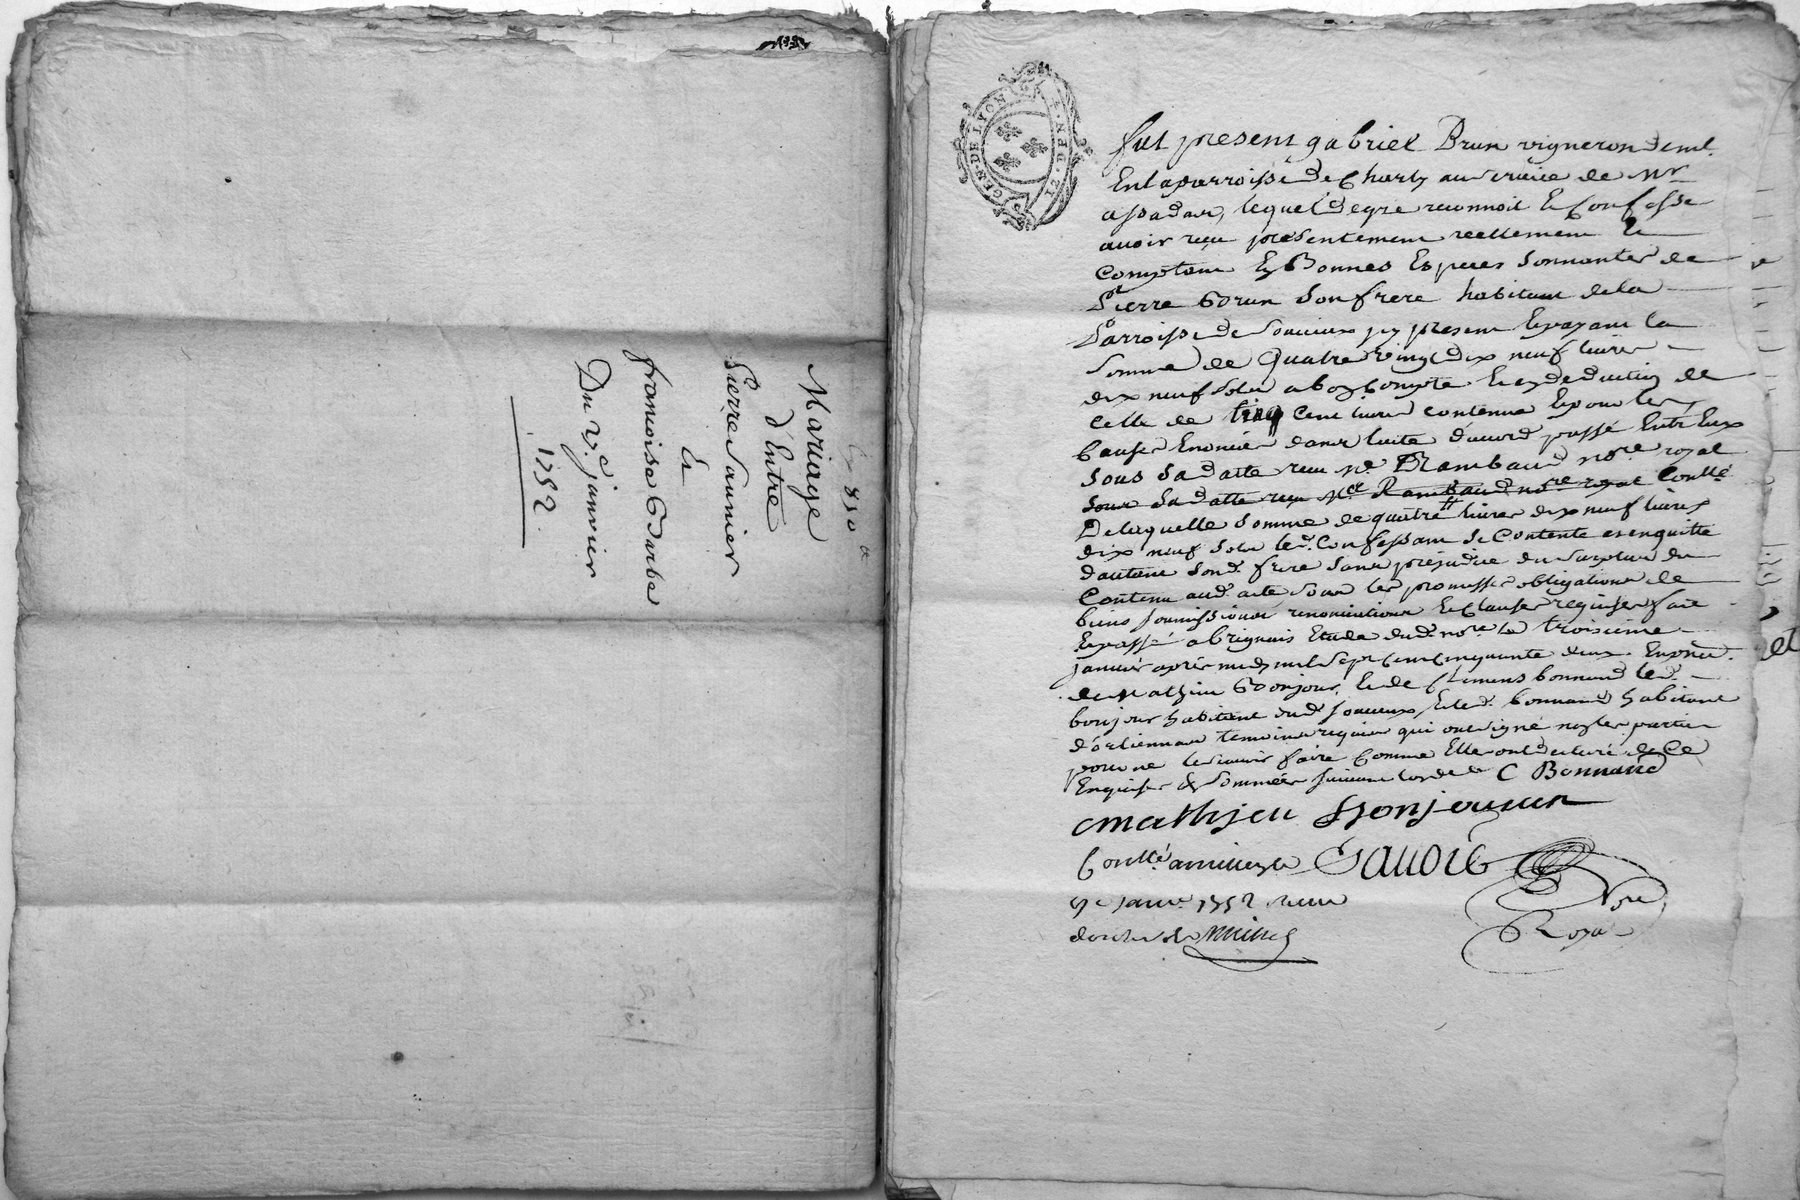 Mariage
d'Entre
Pierre Saunier
&
francoise Barbe
Du 5.e janvier
1752.
GEN. DE LYON
fut present gabriel Brun vigneron dem.t
En la parroisse de Charly au service de Mr
lequel de gre reconnoit & Confesse
avoir reçu presentement reellement &
Comptant En Bonnes Especes sonnantes de
Pierre Brun son frere habitant de la
Parroisse de Soucieux icy present & payant la
Somme de Quatre vingt dix neuf livres
dix neuf sols a bon Compte & en deduction de
Celle de Cinq Cent livres contenue & pour les
Causes Enoncées dans l'acte d'accord passé Entr Eux
Sous sa datte reçu Me Rambaud no.re royal
sous sa datte reçu Me Rambaud no.re royal Conllé
De laquelle somme de quatre livres dix neuf livres
dix neuf sols led. Confessant se Contente & en quitte
d'autant sond. frere sans prejudice du surplus du
Contenu aud. acte sous les promesses obligations de
biens soumissions renonciations & Clauses requises fait
& passé a brignais Etude dud. no.re le troisieme
janvier apres midy mil sept Cent Cinquante deux. En pnce.
de Mathieu Bonjour, & de Clemens bonnand led.
bonjour habitant dud. Soucieux & led. bonnand habitant
d'orlienas temoins requis qui ont signé non les parties
pour ne le savoir faire Comme Elles ont declaré de Ce
Enquises & Sommées suivant l'orde. C Bonnand
Mathieu Bonjour
Conllé a Savoie
5e janv. 1752 reçu
douze s.
No.re
Royal